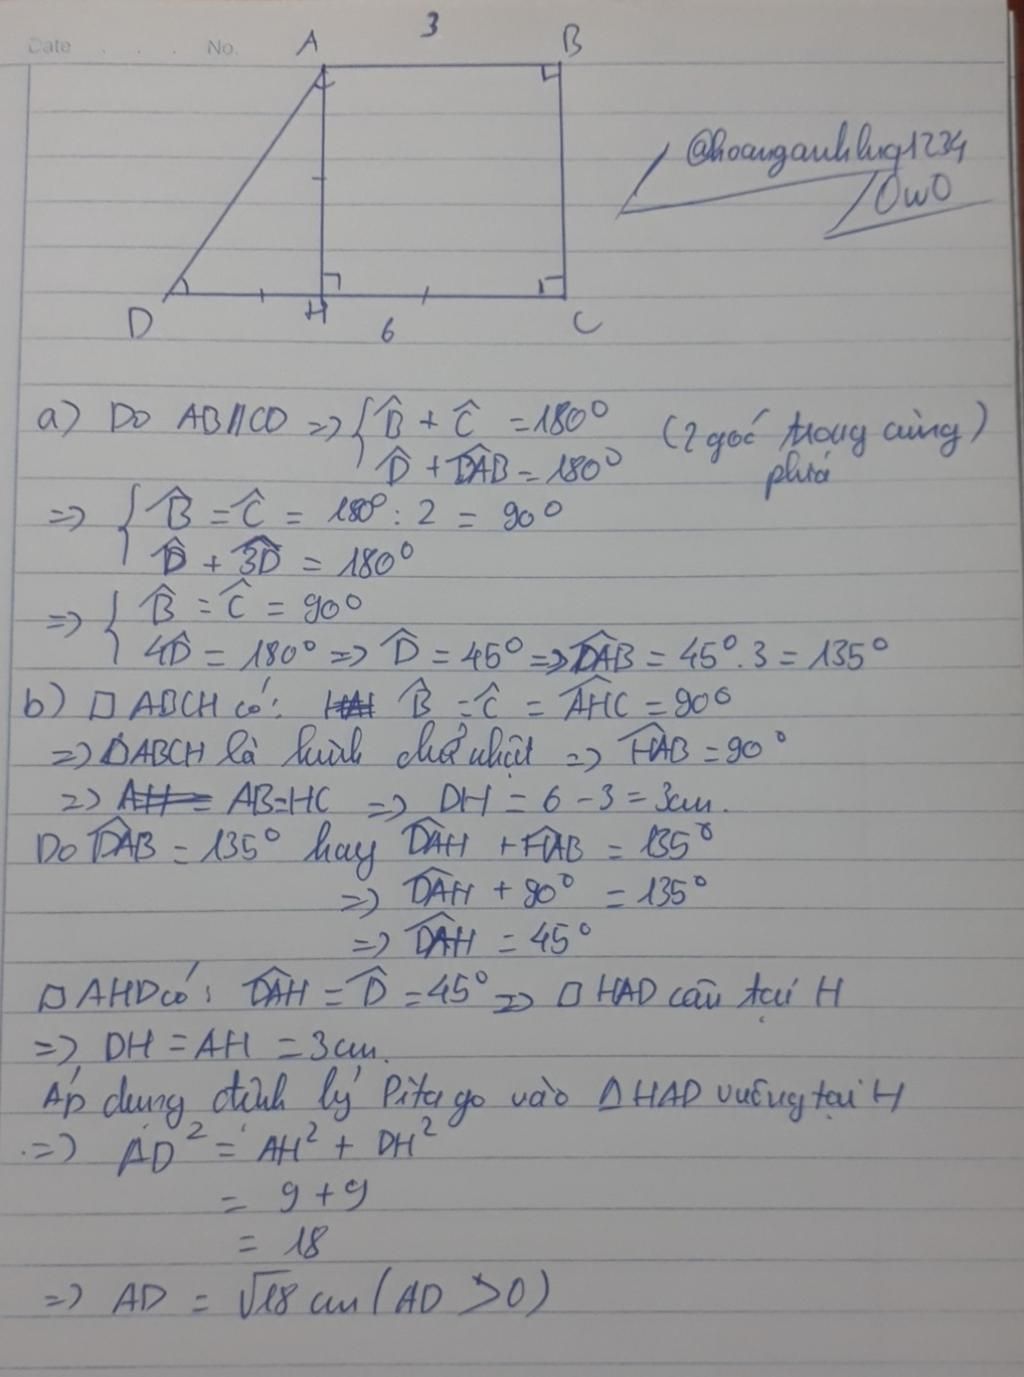 Date . . . No.
A 3 B
@hoanganhlvg1234
OwO
D H 6 C
a) Do AB//CD => { B̂ + Ĉ = 180° (2 góc trong cùng phía)
D̂ + DAB̂ = 180°
=> { B̂ = Ĉ = 180° : 2 = 90°
D̂ + 3D̂ = 180°
=> { B̂ = Ĉ = 90°
4D̂ = 180° => D̂ = 45° => DAB̂ = 45°.3 = 135°
b) □ ABCH có: B̂ = Ĉ = AHĈ = 90°
=> □ABCH là hình chữ nhật => HAB̂ = 90°
=> AB=HC => DH = 6 - 3 = 3cm.
Do DAB̂ = 135° hay DAĤ + HAB̂ = 135°
=> DAĤ + 90° = 135°
=> DAĤ = 45°
□ AHD có: DAĤ = D̂ = 45° => □ HAD cân tại H
=> DH = AH = 3cm.
Áp dụng định lý Pitago vào △HAD vuông tại H
=> AD² = AH² + DH²
= 9 + 9
= 18
=> AD = √18 cm (AD > 0)